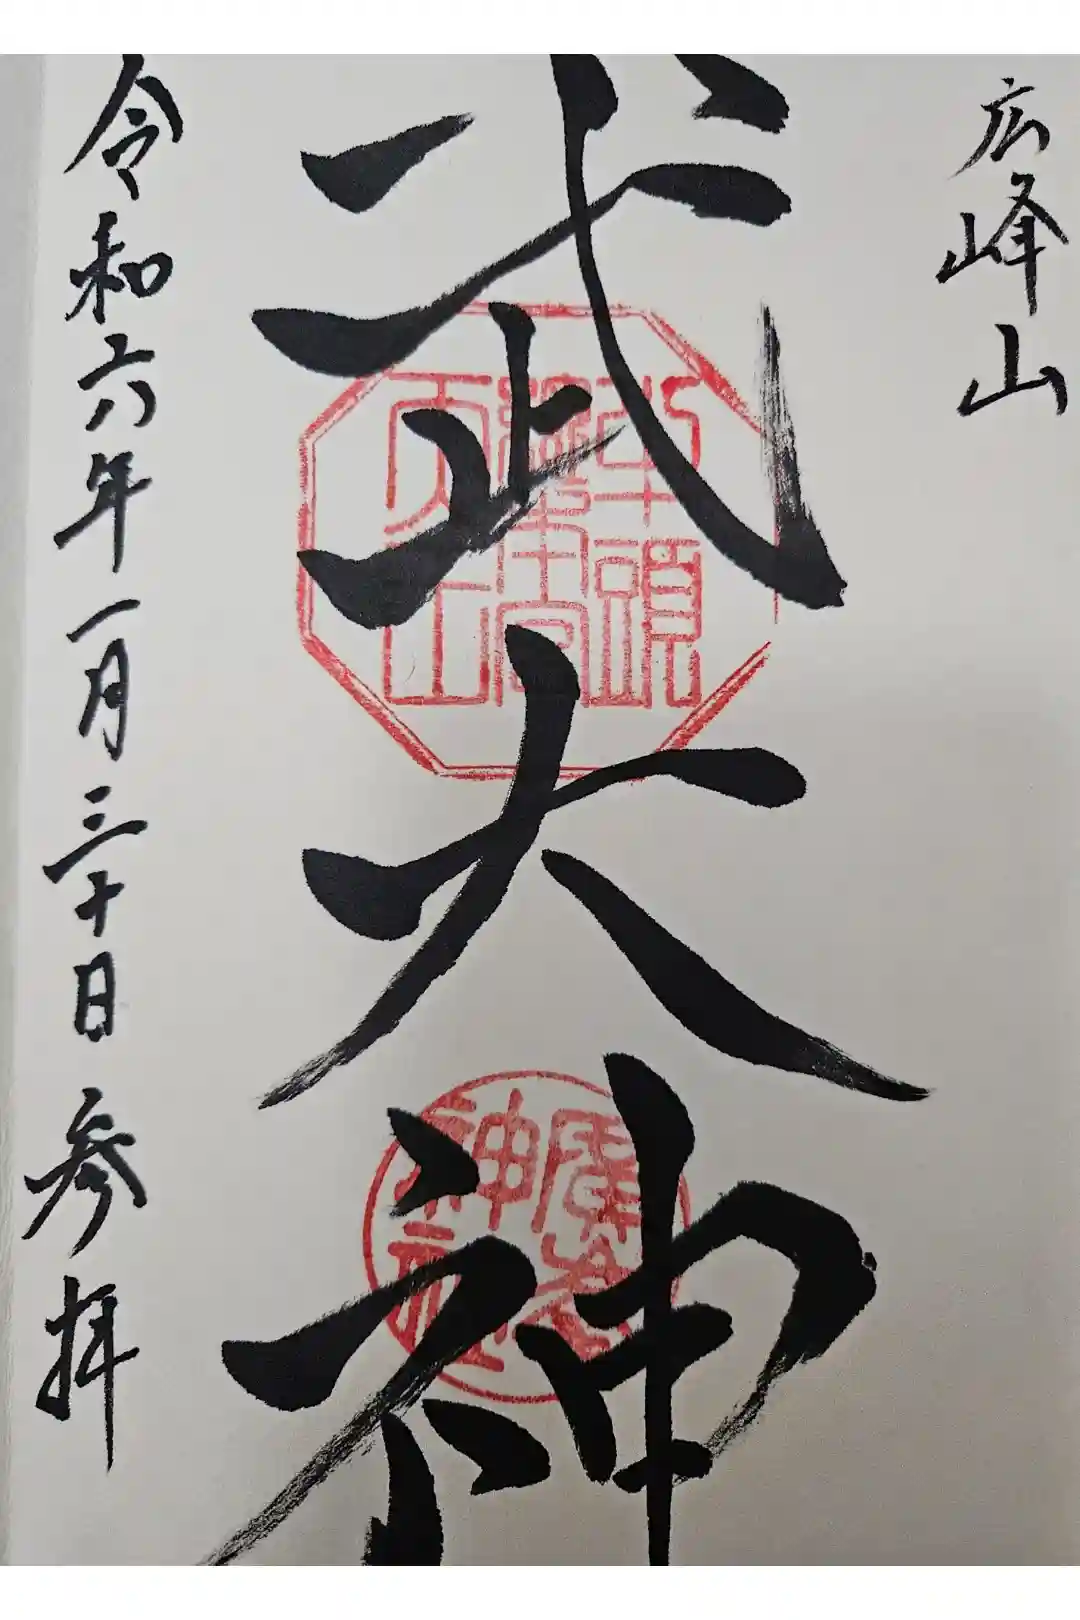 広峰山
武大神
令和六年一月三十日参拝